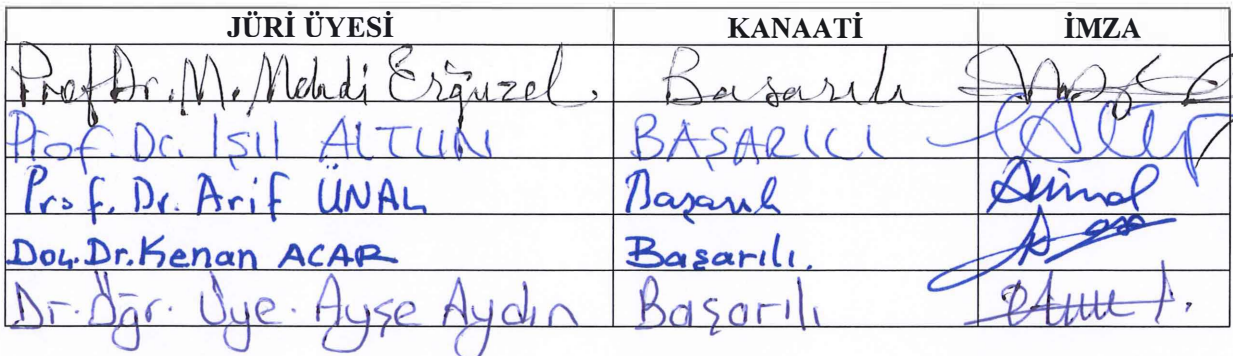 JÜRİ ÜYESİ KANAATİ İMZA
Prof Dr. M. Mehdi Ergüzel. Başarılı
Prof. Dr. IŞIl ALTUN BAŞARILI
Prof. Dr. Arif ÜNAL Başarılı
Doç. Dr. Kenan ACAR Başarılı.
Dr. Öğr. Üye. Ayşe Aydın Başarılı